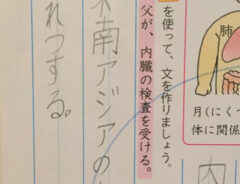 肺
月(にくづ
体に関係
を使って、文を作りましょう。
父が、内臓の検査を受ける。
南アジアの
れつする。
内